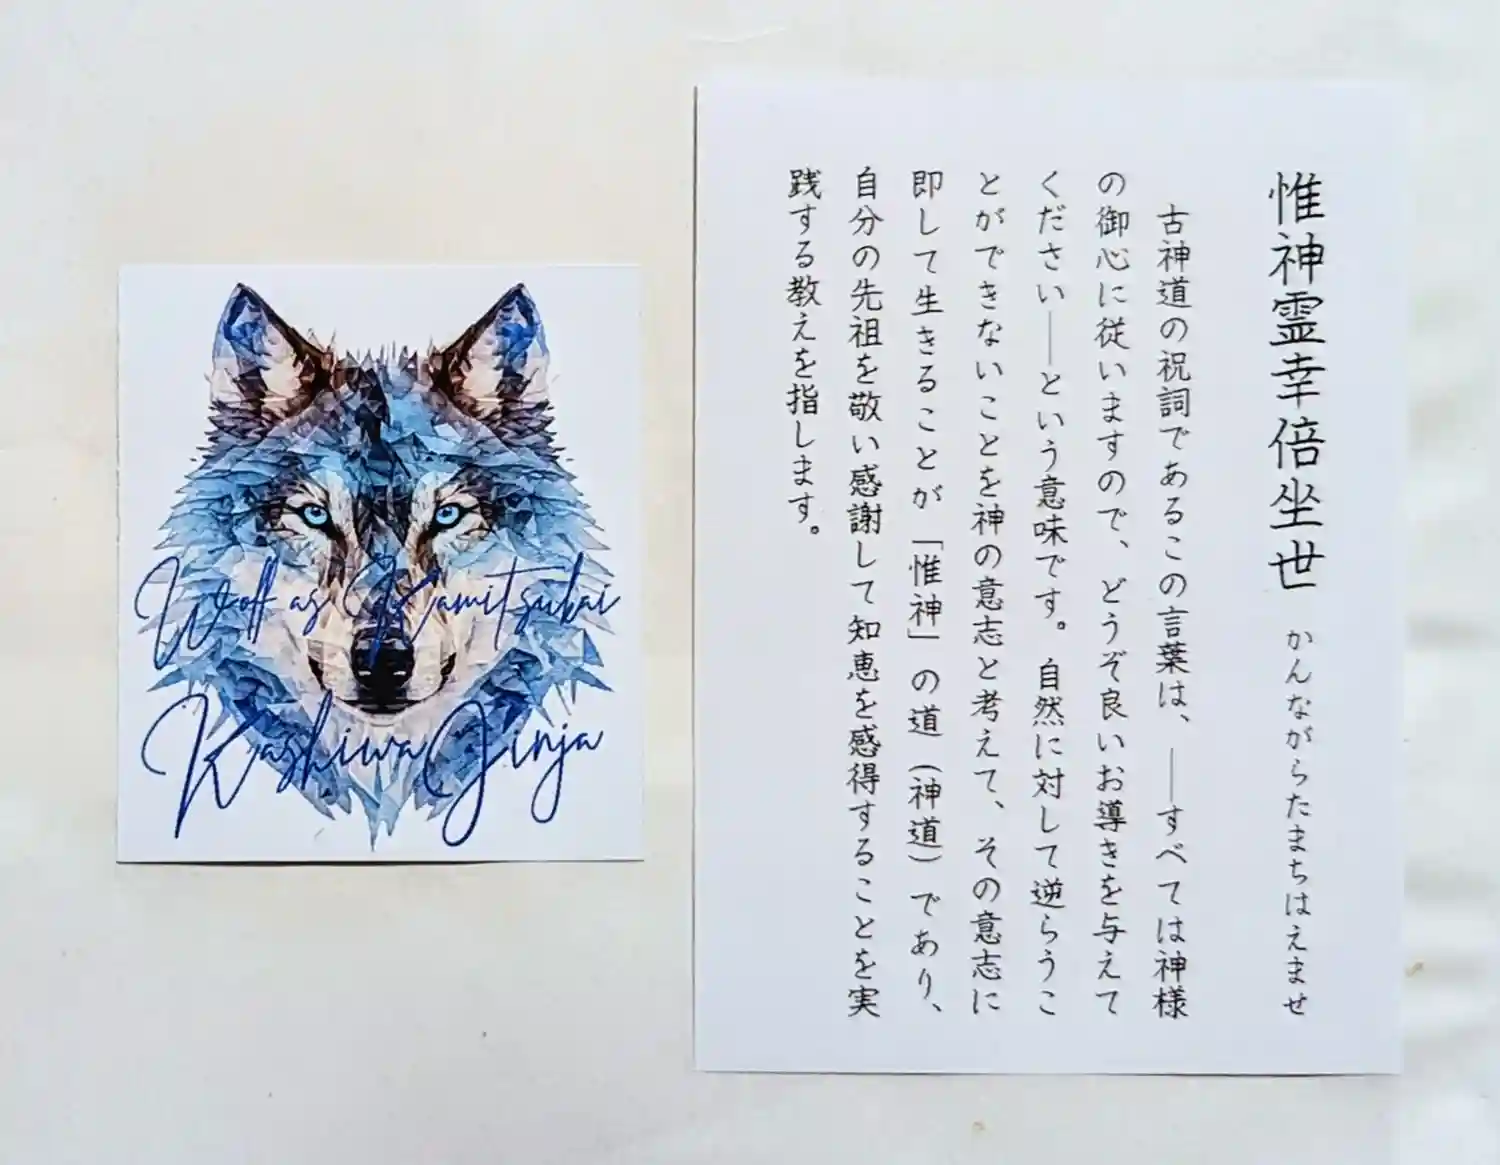 Wolf as Kamitsukai
Kashiwa Jinja
惟神霊幸倍坐世 かんながらたまちはえませ
古神道の祝詞であるこの言葉は、――すべては神様
の御心に従いますので、どうぞ良いお導きを与えて
ください――という意味です。自然に対して逆らうこ
とができないことを神の意志と考えて、その意志に
即して生きることが「惟神」の道(神道)であり、
自分の先祖を敬い感謝して知恵を感得することを実
践する教えを指します。